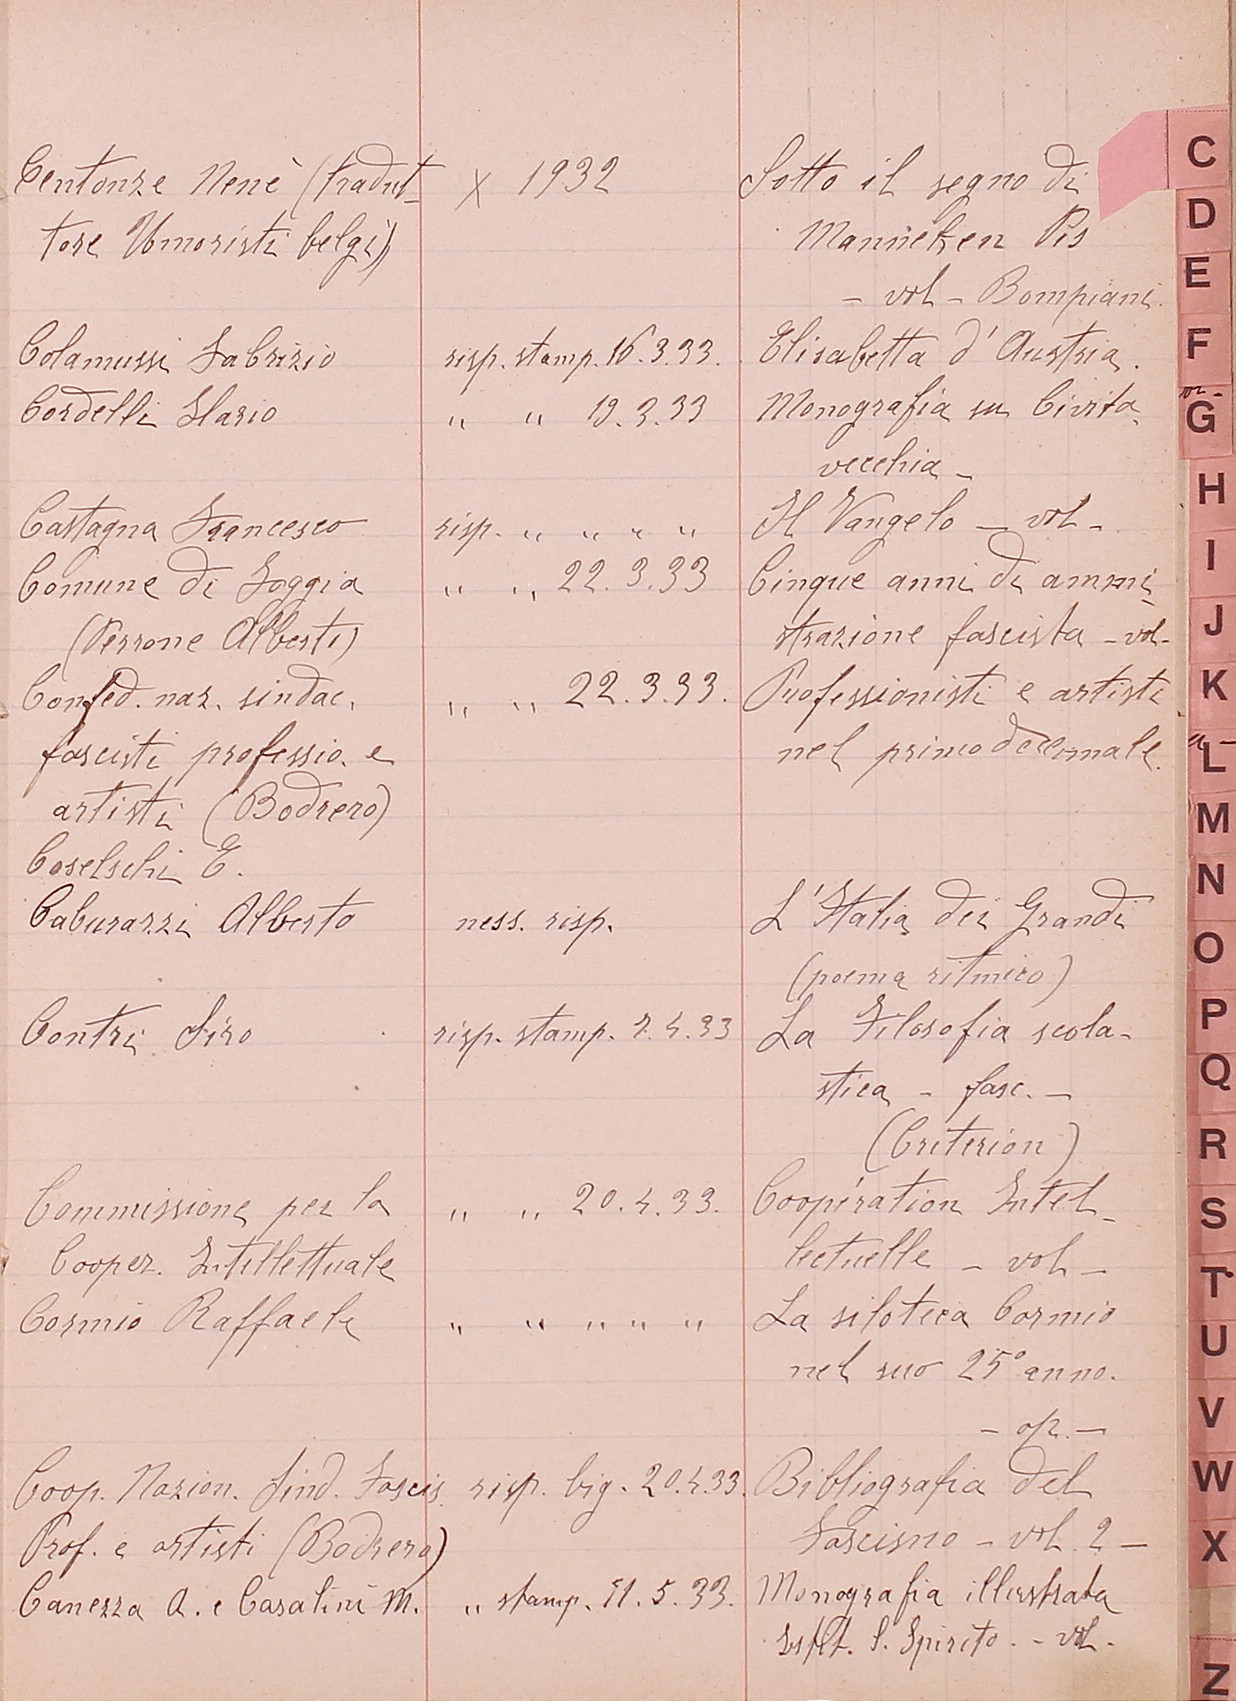 Centonze Nenè (tradut- x 1932 Sotto il segno di
tore Umoristi belgi) Manneken Pis
- vol - Bompiani.
Colamussi Fabrizio risp. stamp. 16.3.33. Elisabetta d'Austria.
Cordelli Ilario " " 19.3.33 Monografia su Civita-
vecchia -
Castagna Francesco risp. " " " " Il Vangelo - vol -
Comune di Foggia " " 22.3.33 Cinque anni di ammi-
(Perrone Alberti) strazione fascista - vol -
Confed. naz. sindac. " " 22.3.33. Professionisti e artisti
fascisti professio. e nel primo decennale.
artisti (Bodrero)
Coselschi E.
Caburazzi Alberto ness. risp. L'Italia dei Grandi
(poema ritmico)
Contri Siro risp. stamp. 7.4.33 La Filosofia scola-
stica - fasc. -
(Criterion)
Commissione per la " " 20.4.33. Coopération Intel-
Cooper. Intellettuale lectuelle - vol -
Cormio Raffaele " " " " " La siloteca Cormio
nel suo 25° anno.
- op. -
Coop. Nazion. Sind. Fascis. risp. big. 20.4.33. Bibliografia del
Prof. e artisti (Bodrero) Fascismo - vol. 2 -
Canezza A. e Casalini M. " stamp. 11.5.33. Monografia illustrata
S. Spirito. - vol.
C
D
E
F
G
H
I
J
K
L
M
N
O
P
Q
R
S
T
U
V
W
X
Z